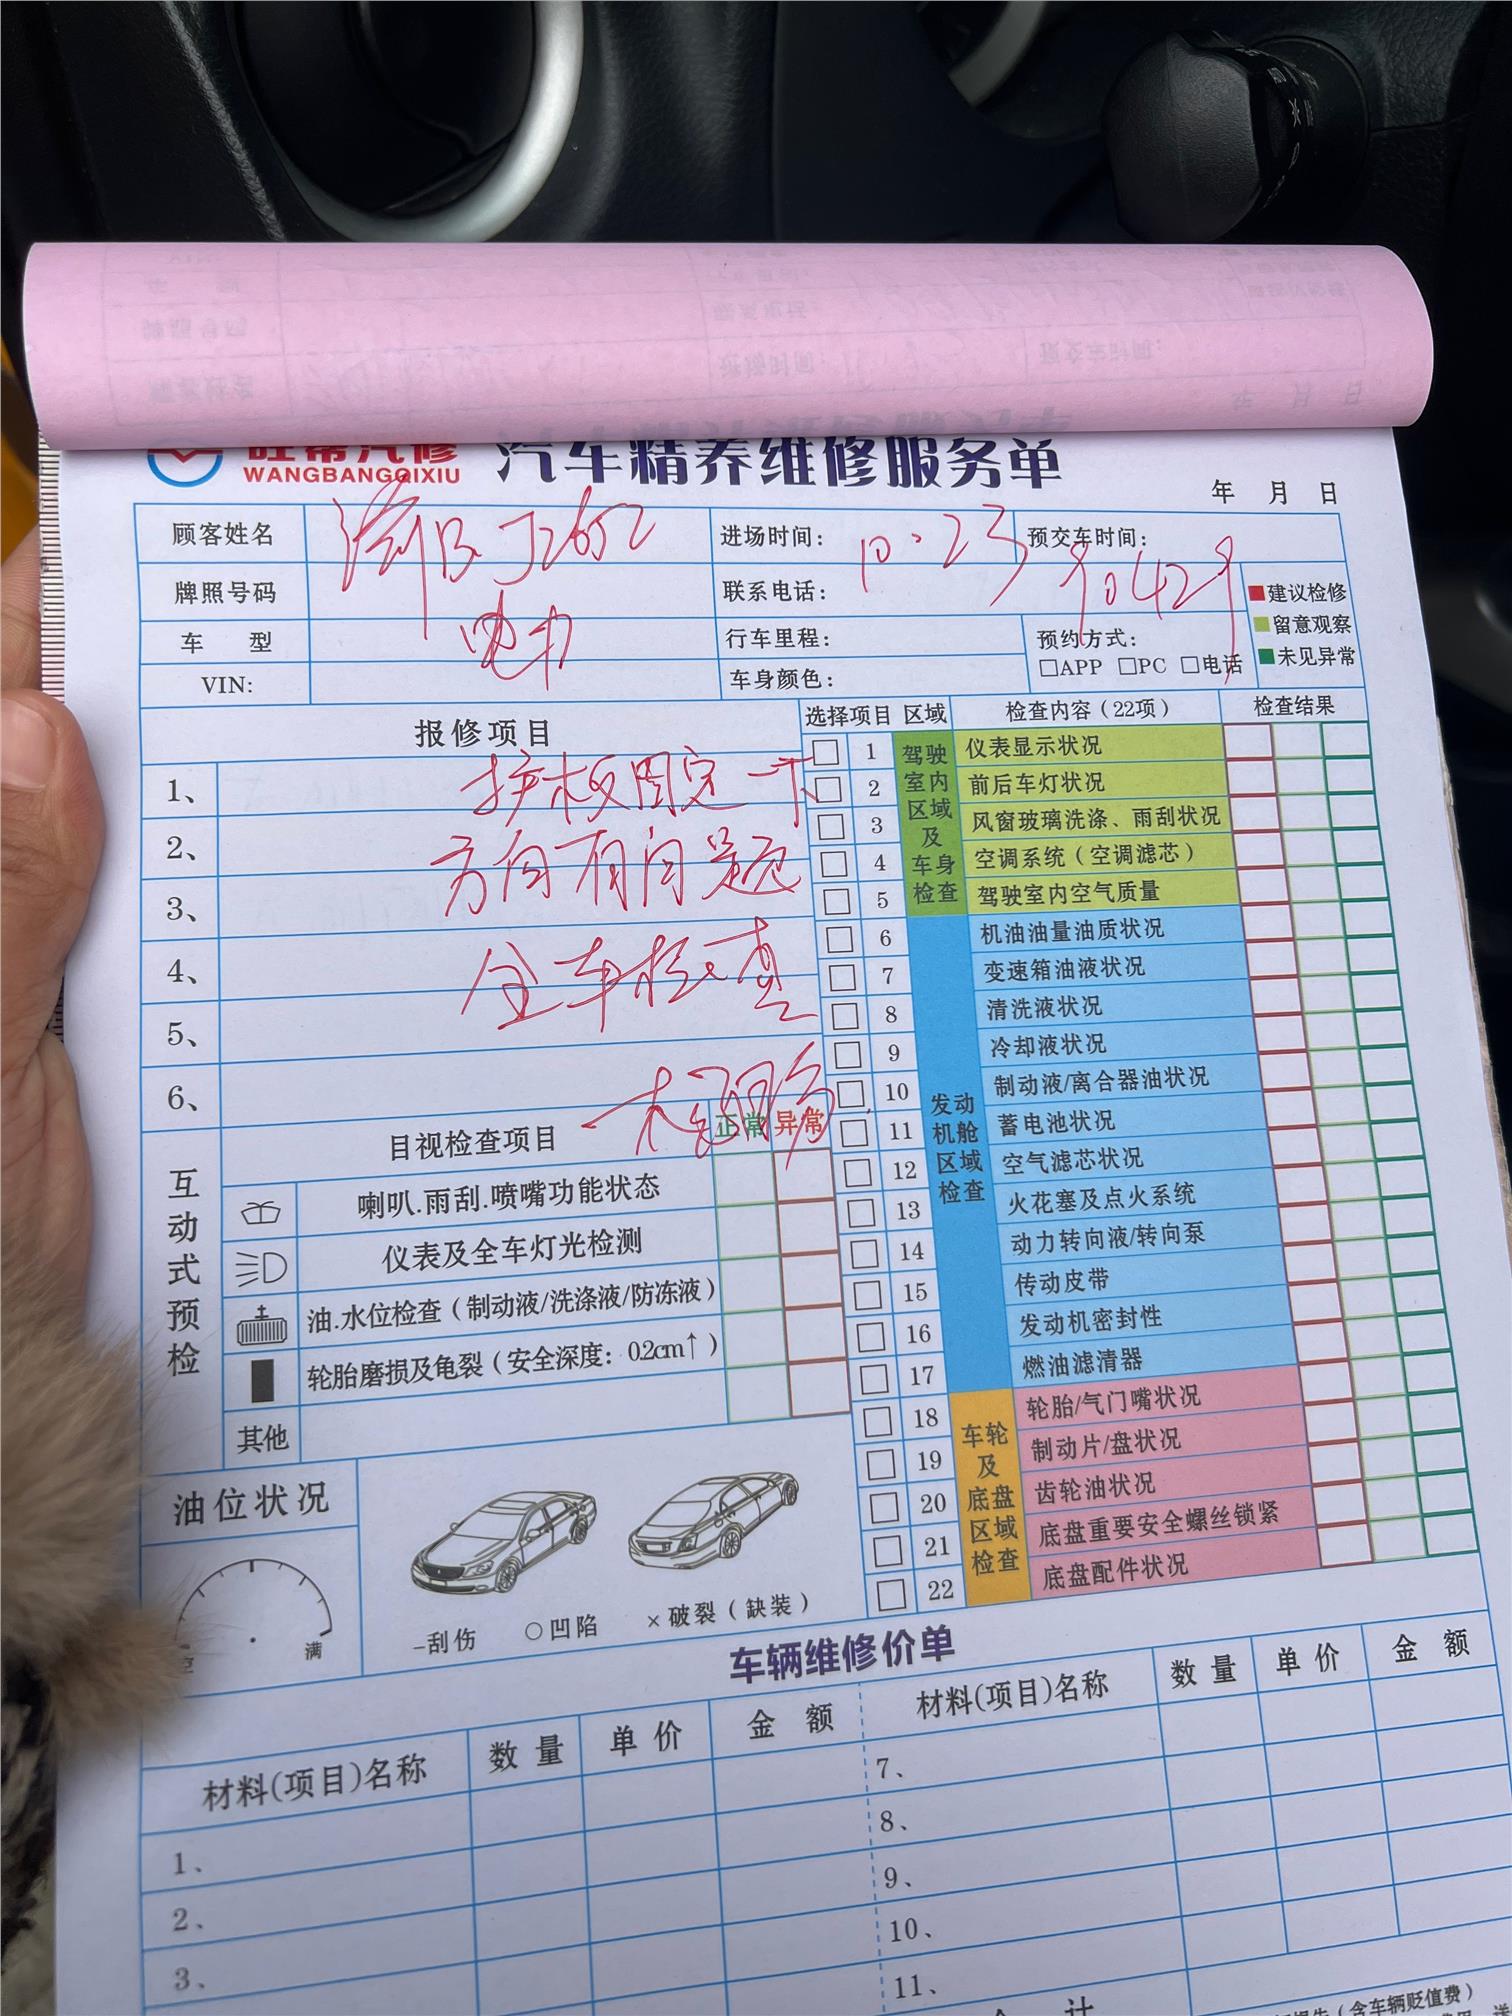 旺帮汽修
WANGBANGQIXIU
汽车精养维修服务单
年 月 日
顾客姓名
J2652
进场时间:
10.23
预交车时间:
牌照号码
联系电话:
90429
车 型
电力
行车里程:
预约方式:
□APP □PC □电话
VIN:
车身颜色:
建议检修
留意观察
未见异常
报修项目
1、
护板固定一下
2、
方向有问题
3、
4、
全车检查
5、
6、
互动式预检
目视检查项目
正常
异常
喇叭.雨刮.喷嘴功能状态
仪表及全车灯光检测
油.水位检查（制动液/洗涤液/防冻液）
轮胎磨损及龟裂（安全深度：0.2cm↑）
其他
油位状况
满
-刮伤 ○凹陷 ×破裂（缺装）
选择项目 区域 检查内容（22项） 检查结果
驾驶室内区域及车身检查
1 仪表显示状况
2 前后车灯状况
3 风窗玻璃洗涤、雨刮状况
4 空调系统（空调滤芯）
5 驾驶室内空气质量
发动机舱区域检查
6 机油油量油质状况
7 变速箱油液状况
8 清洗液状况
9 冷却液状况
10 制动液/离合器油状况
11 蓄电池状况
12 空气滤芯状况
13 火花塞及点火系统
14 动力转向液/转向泵
15 传动皮带
16 发动机密封性
17 燃油滤清器
车轮及底盘区域检查
18 轮胎/气门嘴状况
19 制动片/盘状况
20 齿轮油状况
21 底盘重要安全螺丝锁紧
22 底盘配件状况
车辆维修价单
材料(项目)名称 数量 单价 金额 材料(项目)名称 数量 单价 金额
1、
2、
3、
7、
8、
9、
10、
11、
合 计
（含车辆贬值费）